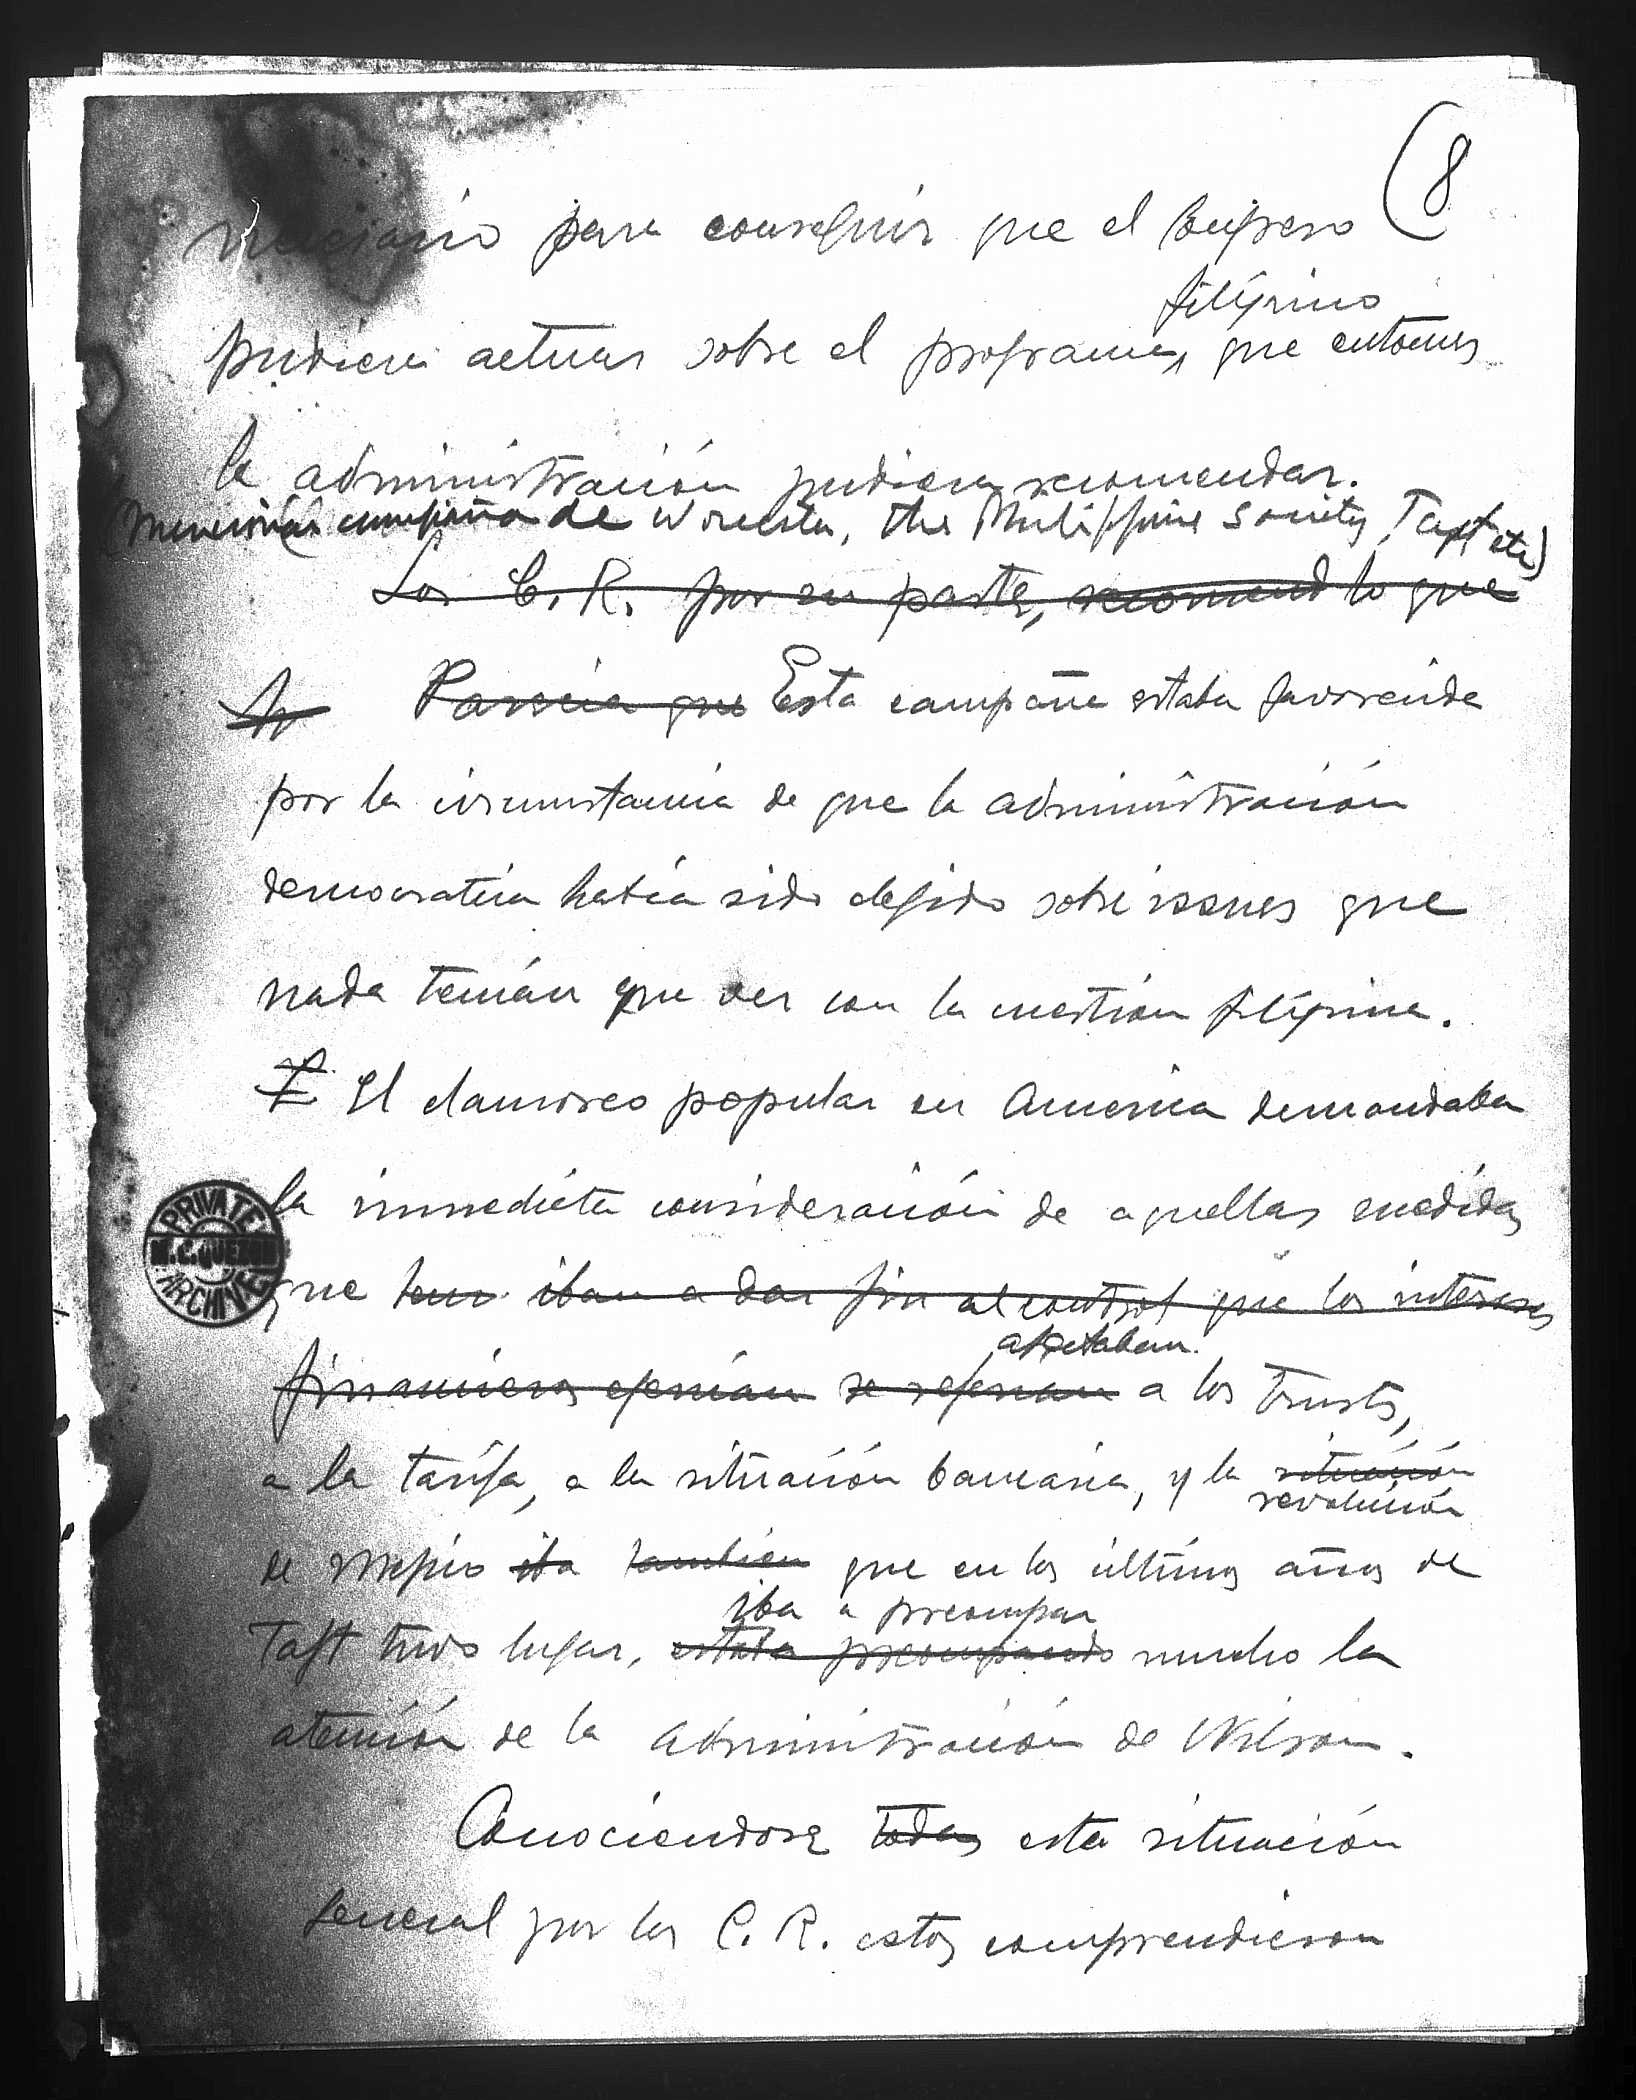 (8
necesario para conseguir que el Congreso
filipino
pudiera actuar sobre el programa, que entonces
la administración pudiera recomendar.
(Mencionar campaña de Worcester, the Philippine Society, Taft etc)
Los C. R. por su parte, recomend lo que
Parecía que Esta campaña estaba favorecida
por la circunstancia de que la administración
democratica había sido elegido sobre issues que
nada tenían que ver con la cuestión filipina.
El clamoreo popular en America demandaba
la inmediata consideración de aquellas medidas
que iban a dar fin al control que los intereses
afectaban
financieros ejercían se referian a los trusts,
a la tarifa, a la situación bancaria, y la situación
revolución
de Mejico iba tambien que en los ultimos años de
iba a preocupar
Taft tuvo lugar, estaba preocupando mucho la
atención de la administración de Wilson.
Conociendose todas esta situación
general por los C. R. estos comprendieron
PRIVATE
M. C. QUEZON
ARCHIVE